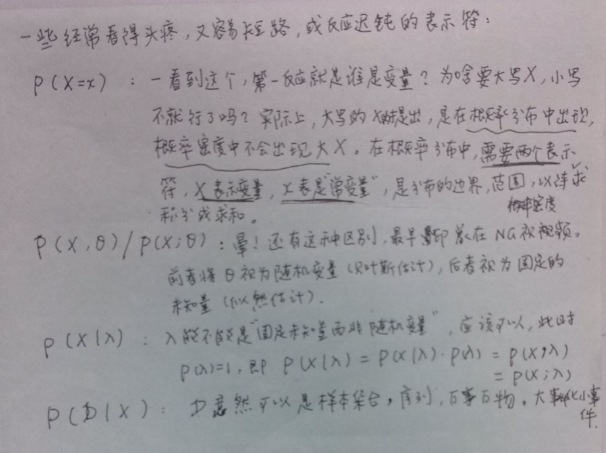 一些经常看得头疼，又容易短路，或反应迟钝的表示符：
P(X=x)：一看到这个，第一反应就是谁是变量？为啥要大写X，小写
不就行了吗？实际上，大写的X的提出，是在概率分布中出现，
概率密度中不会出现大X。在概率分布中，需要两个表示
符，X表示变量，x表是"常变量"，是分布的边界，范围，以待求
积分或求和。
概率密度
P(X,θ)/P(X;θ)：晕！还有这种区别，最早印象在NG视频。
前者将θ视为随机变量（贝叶斯估计），后者视为固定的
未知量（似然估计）.
P(X|λ)：λ能不能是"固定未知量而非随机变量"，应该可以，此时
P(λ)=1，即 P(X|λ)=P(X|λ)·P(λ)=P(X,λ)
=P(X;λ)
P(D|X)：D竟然可以是样本集合，序列，百事百物，大事化小事
件.